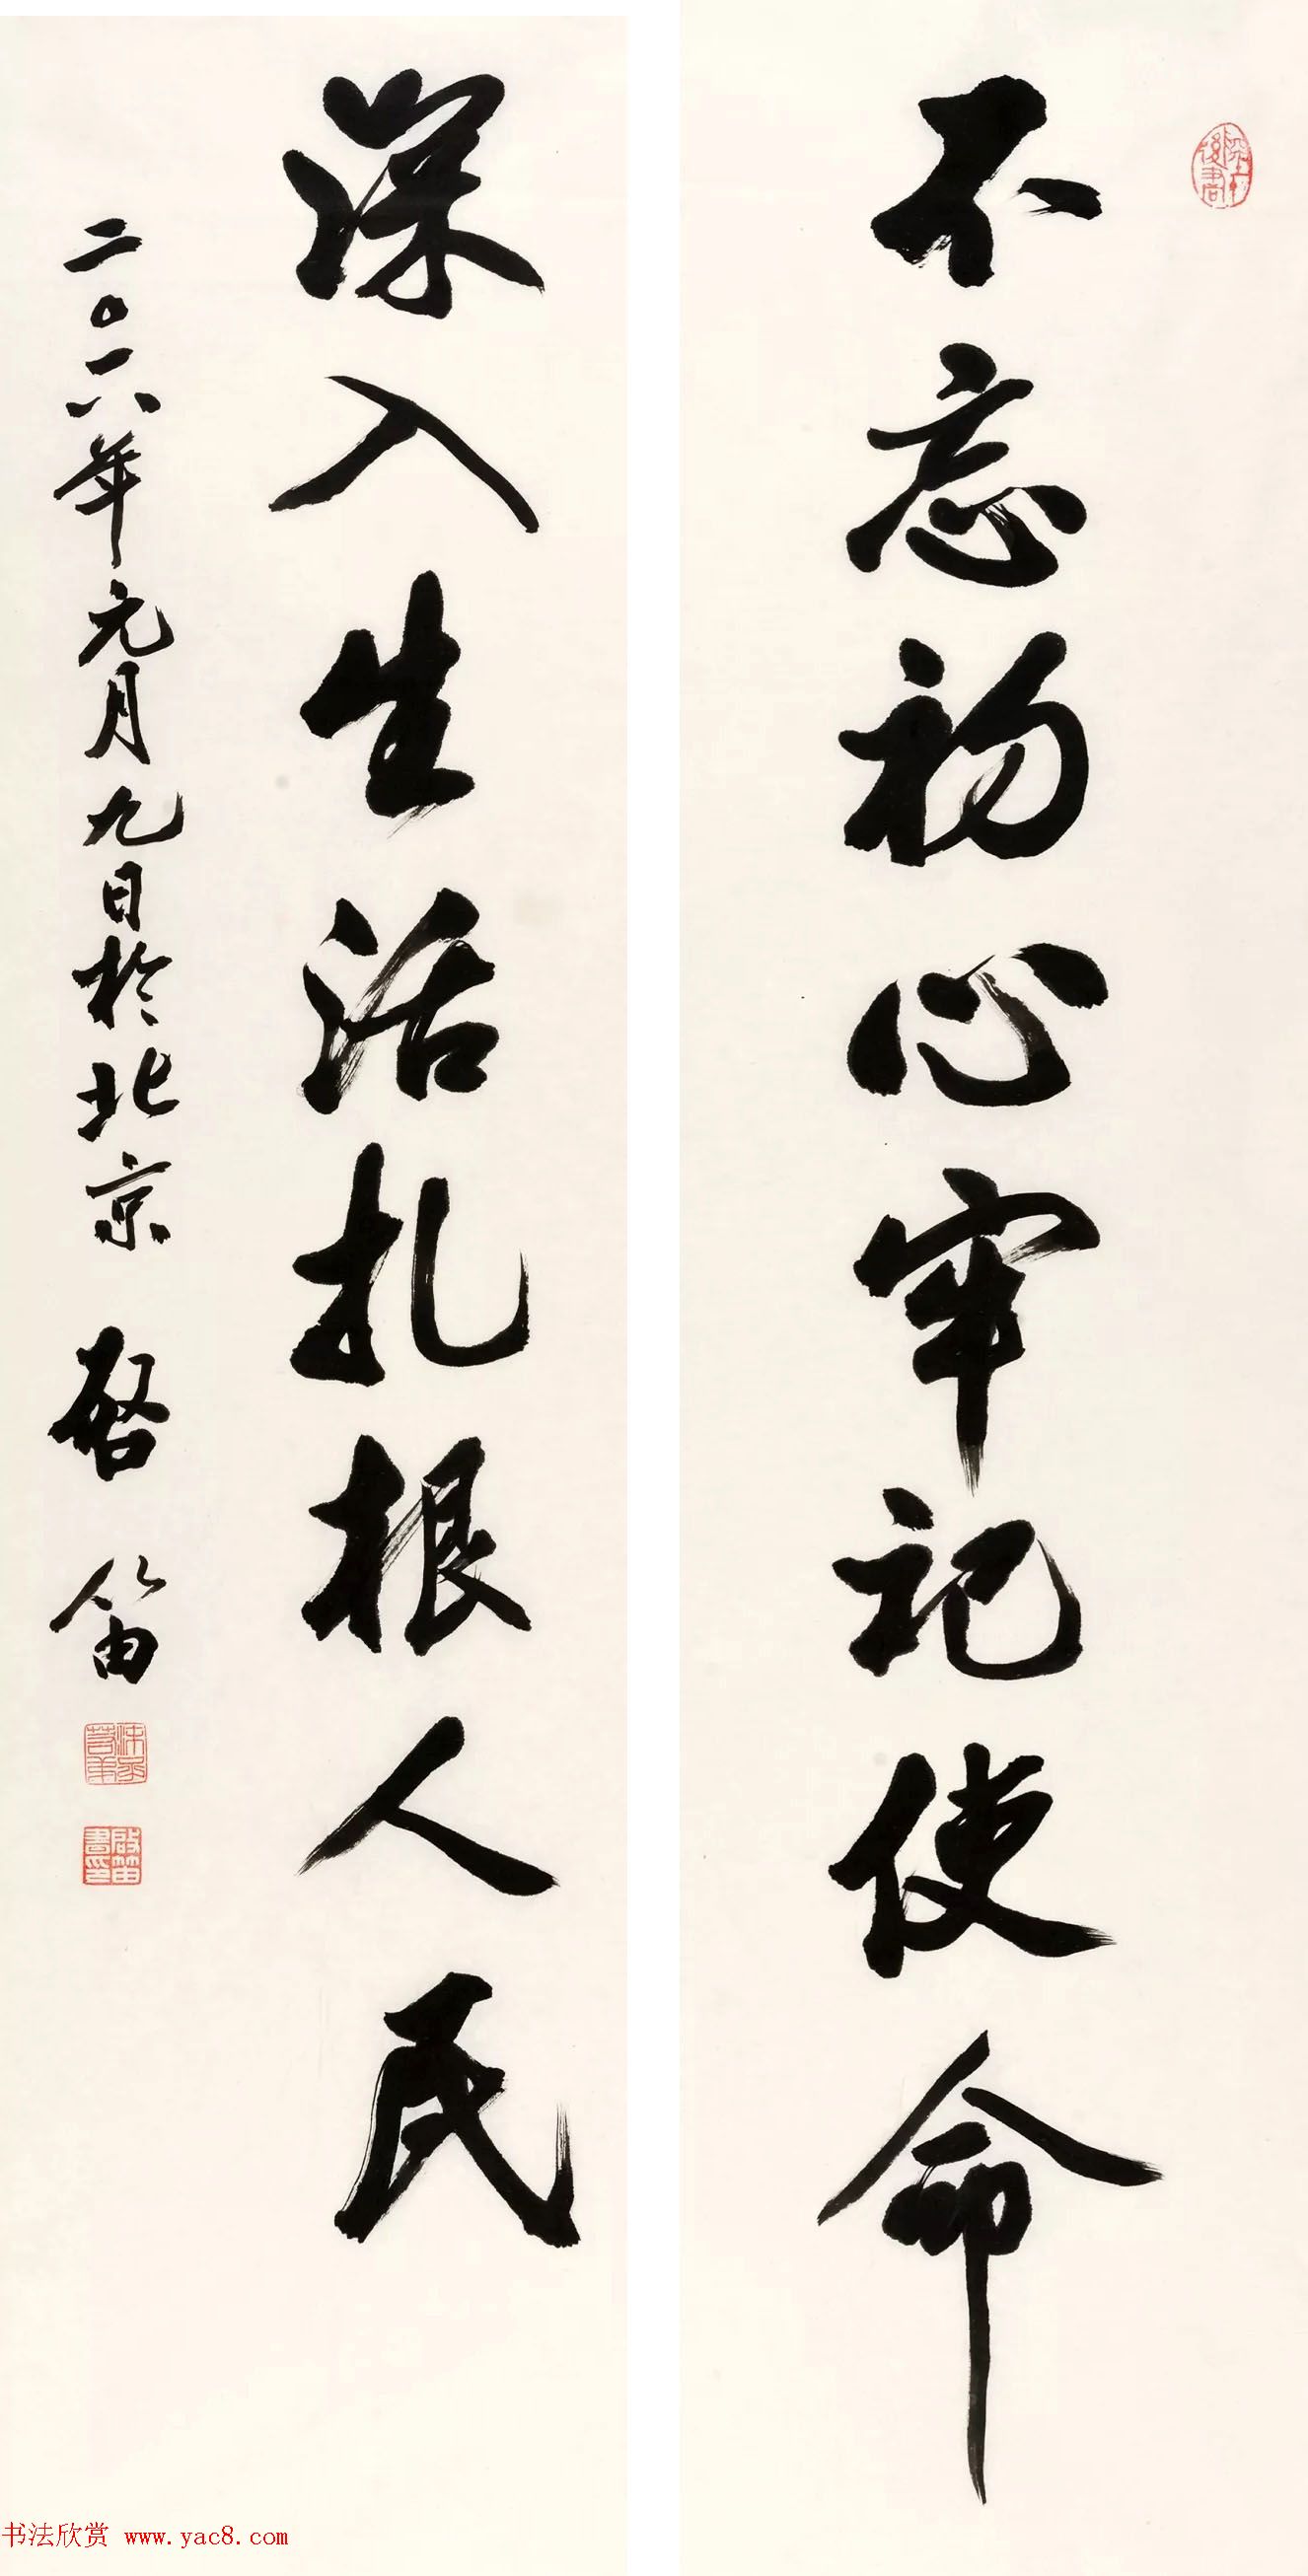 不忘初心牢记使命
深入生活扎根人民
二〇一八年元月九日於北京 啓笛
啟笛書印
书法欣赏 www.yac8.com